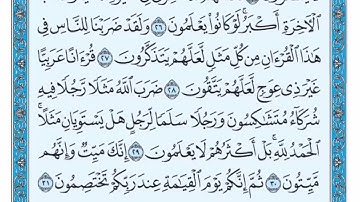 ٱلْأَخِرَةِ أَكْبَرُ ۚ لَوْ كَانُوا۟ يَعْلَمُونَ ٢٦ وَلَقَدْ ضَرَبْنَا لِلنَّاسِ فِى
هَٰذَا ٱلْقُرْءَانِ مِن كُلِّ مَثَلٍ لَّعَلَّهُمْ يَتَذَكَّرُونَ ٢٧ قُرْءَانًا عَرَبِيًّا
غَيْرَ ذِى عِوَجٍ لَّعَلَّهُمْ يَتَّقُونَ ٢٨ ضَرَبَ ٱللَّهُ مَثَلًا رَّجُلًا فِيهِ
شُرَكَآءُ مُتَشَٰكِسُونَ وَرَجُلًا سَلَمًا لِّرَجُلٍ هَلْ يَسْتَوِيَانِ مَثَلًا ۚ
ٱلْحَمْدُ لِلَّهِ ۚ بَلْ أَكْثَرُهُمْ لَا يَعْلَمُونَ ٢٩ إِنَّكَ مَيِّتٌ وَإِنَّهُم
مَّيِّتُونَ ٣٠ ثُمَّ إِنَّكُمْ يَوْمَ ٱلْقِيَٰمَةِ عِندَ رَبِّكُمْ تَخْتَصِمُونَ ٣١